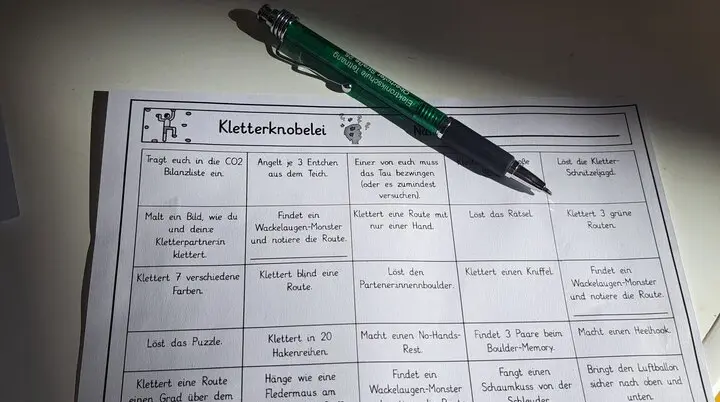 Elektronikschule Tettnang
Kletterknobelei
Na
Tragt euch in die CO2
Bilanzliste ein.
Angelt je 3 Entchen
aus dem Teich.
Einer von euch muss
das Tau bezwingen
(oder es zumindest
versuchen).
Löst die Kletter-
Schnitzeljagd.
Malt ein Bild, wie du
und deine
Kletterpartner:in
klettert.
Findet ein
Wackelaugen-Monster
und notiere die Route.
Klettert eine Route mit
nur einer Hand.
Löst das Rätsel.
Klettert 3 grüne
Routen.
Klettert 7 verschiedene
Farben.
Klettert blind eine
Route.
Löst den
Partener:innenboulder.
Klettert einen Kniffel.
Findet ein
Wackelaugen-Monster
und notiere die Route.
Löst das Puzzle.
Klettert in 20
Hakenreihen.
Macht einen No-Hands-
Rest.
Findet 3 Paare beim
Boulder-Memory.
Macht einen Heelhook.
Klettert eine Route
einen Grad über dem
Hänge wie eine
Fledermaus am
Findet ein
Wackelaugen-Monster
und notiere die Route.
Fangt einen
Schaumkuss von der
Schleuder
Bringt den Luftballon
sicher nach oben und
unten.